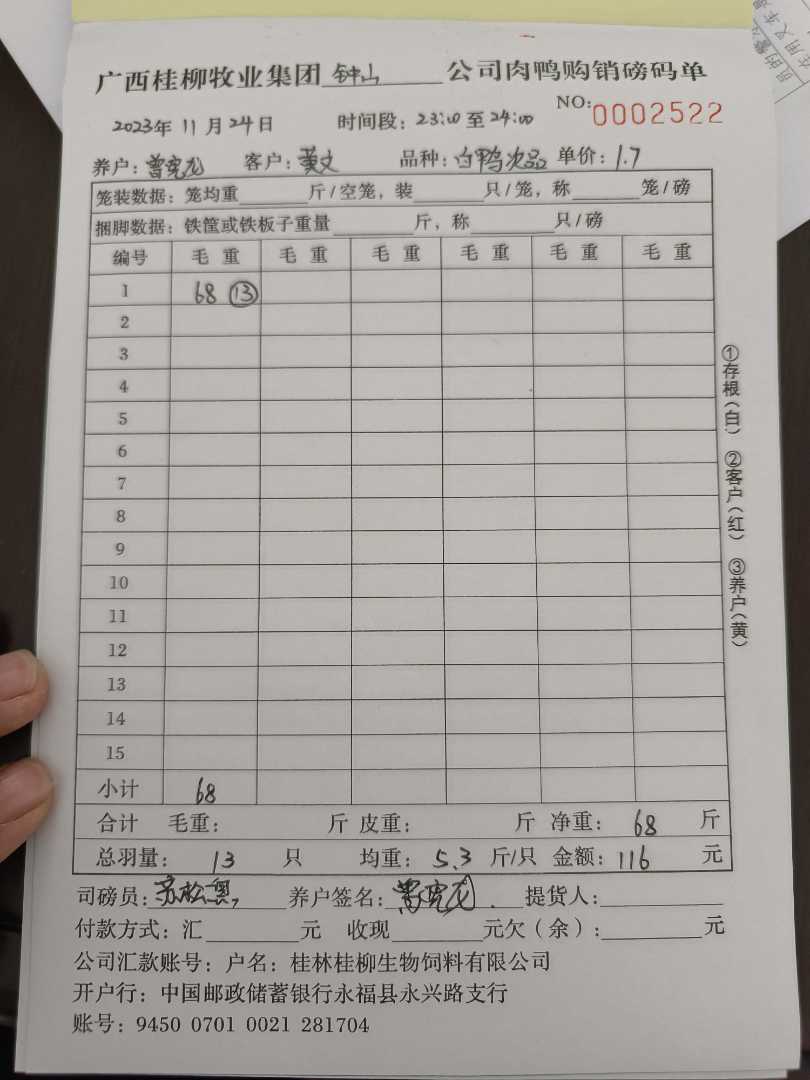 广西桂柳牧业集团 钟山 公司肉鸭购销磅码单
NO: 0002522
2023年 11月 24日 时间段: 23:00 至 24:00
养户: 曾宪龙 客户: 黄文 品种: 白鸭次品 单价: 1.7
笼装数据: 笼均重 斤/空笼, 装 只/笼, 称 笼/磅
捆脚数据: 铁筐或铁板子重量 斤, 称 只/磅
编号 毛重 毛重 毛重 毛重 毛重 毛重
1 68 ⑬
2
3
4
5
6
7
8
9
10
11
12
13
14
15
小计 68
合计 毛重: 斤 皮重: 斤 净重: 68 斤
总羽量: 13 只 均重: 5.3 斤/只 金额: 116 元
司磅员: 养户签名: 曾宪龙 提货人:
付款方式: 汇 元 收现 元欠(余): 元
公司汇款账号: 户名: 桂林桂柳生物饲料有限公司
开户行: 中国邮政储蓄银行永福县永兴路支行
账号: 9450 0701 0021 281704
①存根(白) ②客户(红) ③养户(黄)